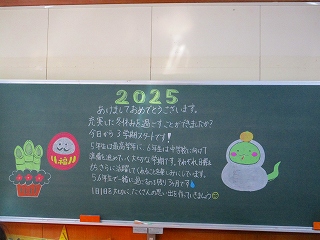 2025
あけましておめでとうございます。
充実した冬休みを過ごすことができましたか？
今日から3学期スタートです！
5年生は最高学年に、6年生は中学校に向けて
準備を進めていく大切な学期です。
さらに活躍してくれることを楽しみにしています。
5、6年生で一緒に過ごせるのも残り3ヶ月です
1日1日を大切に、たくさんの思い出を作っていきましょう
福